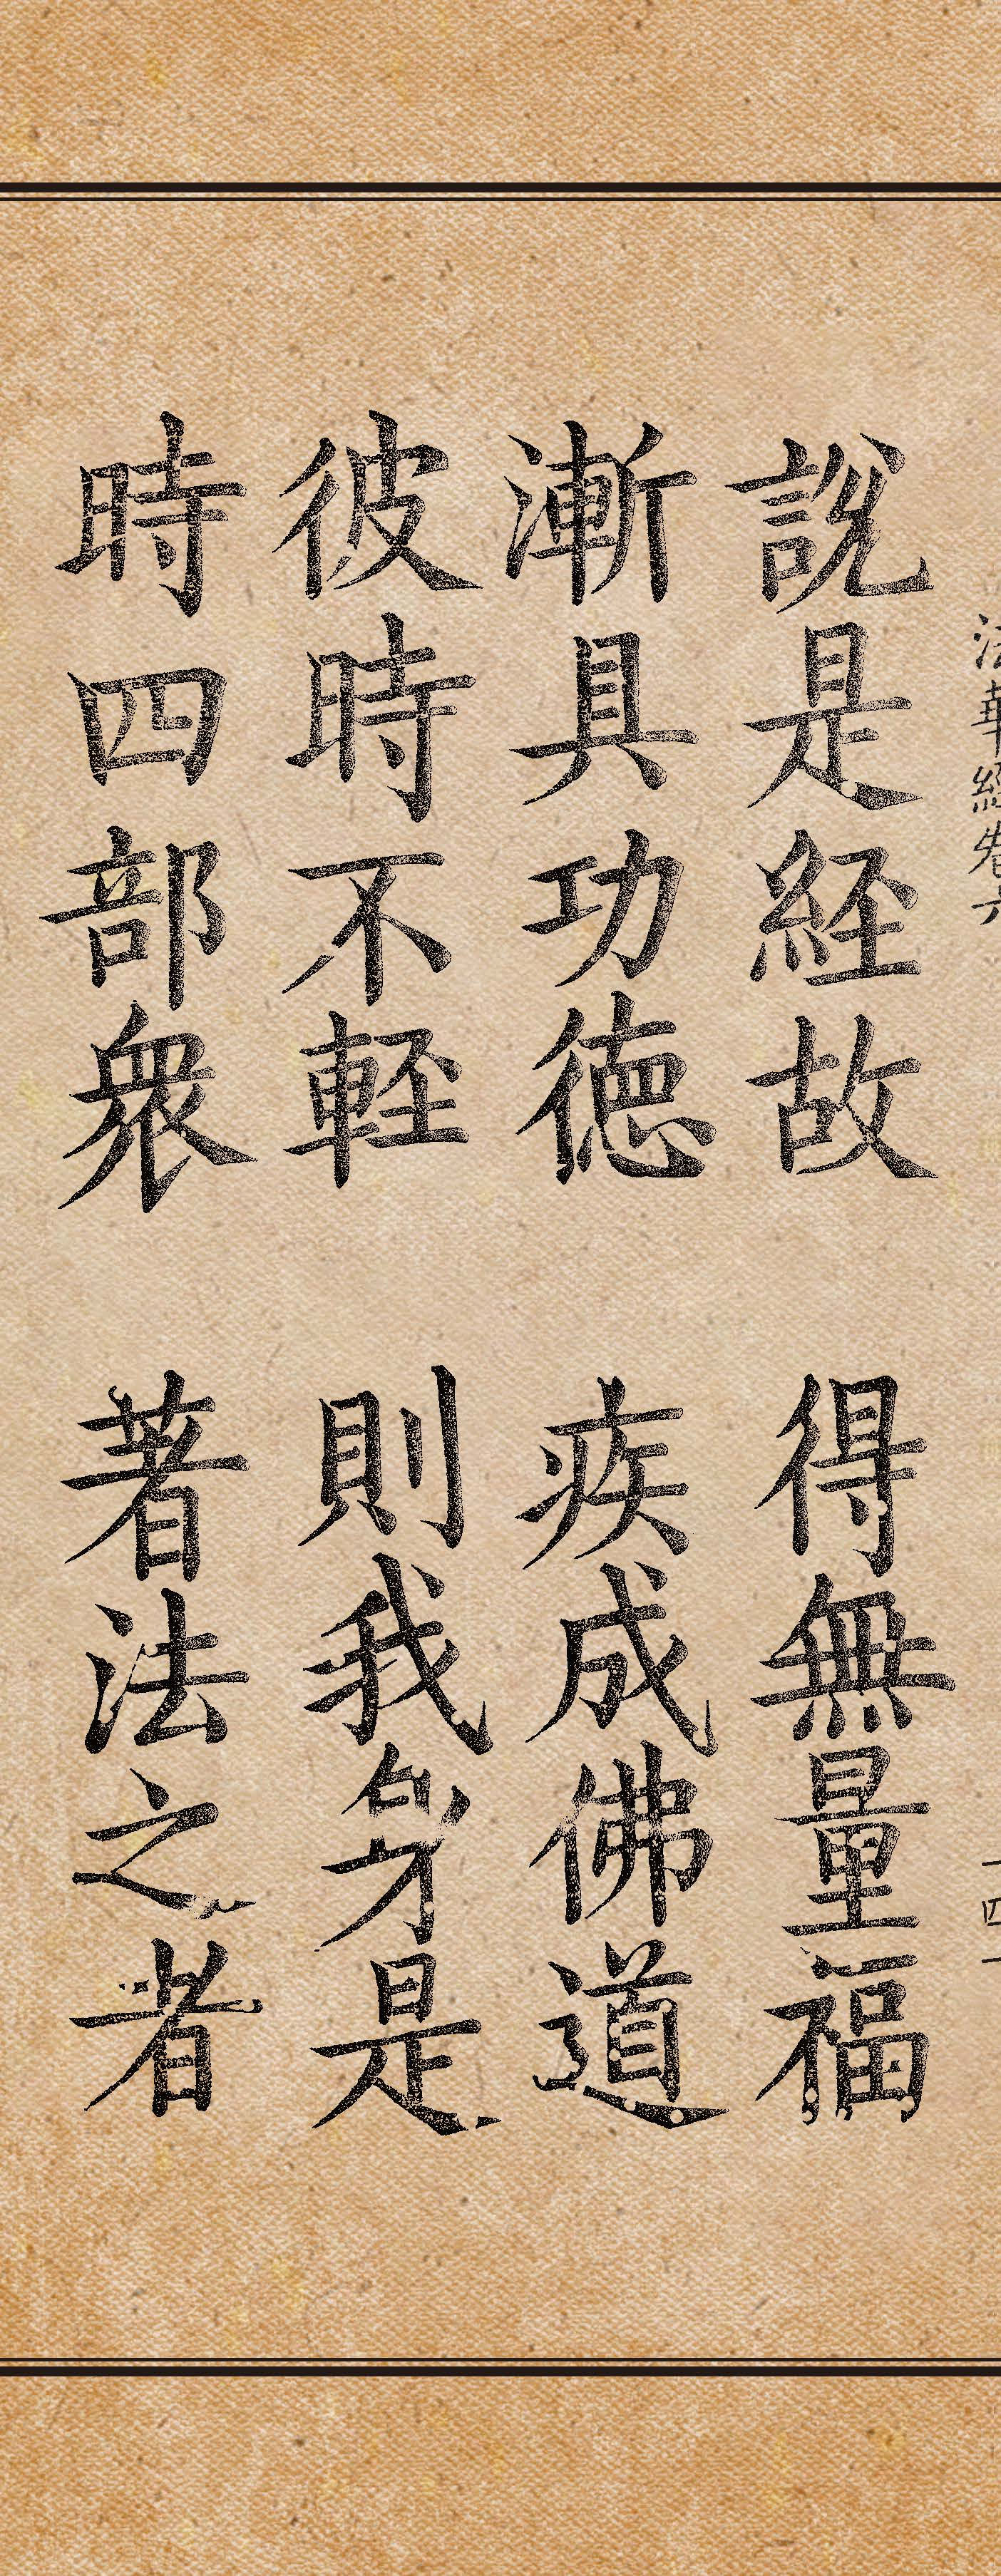 法華經卷六
十四一
說是経故 得無量福
漸具功德 疾成佛道
彼時不軽 則我身是
時四部衆 著法之者